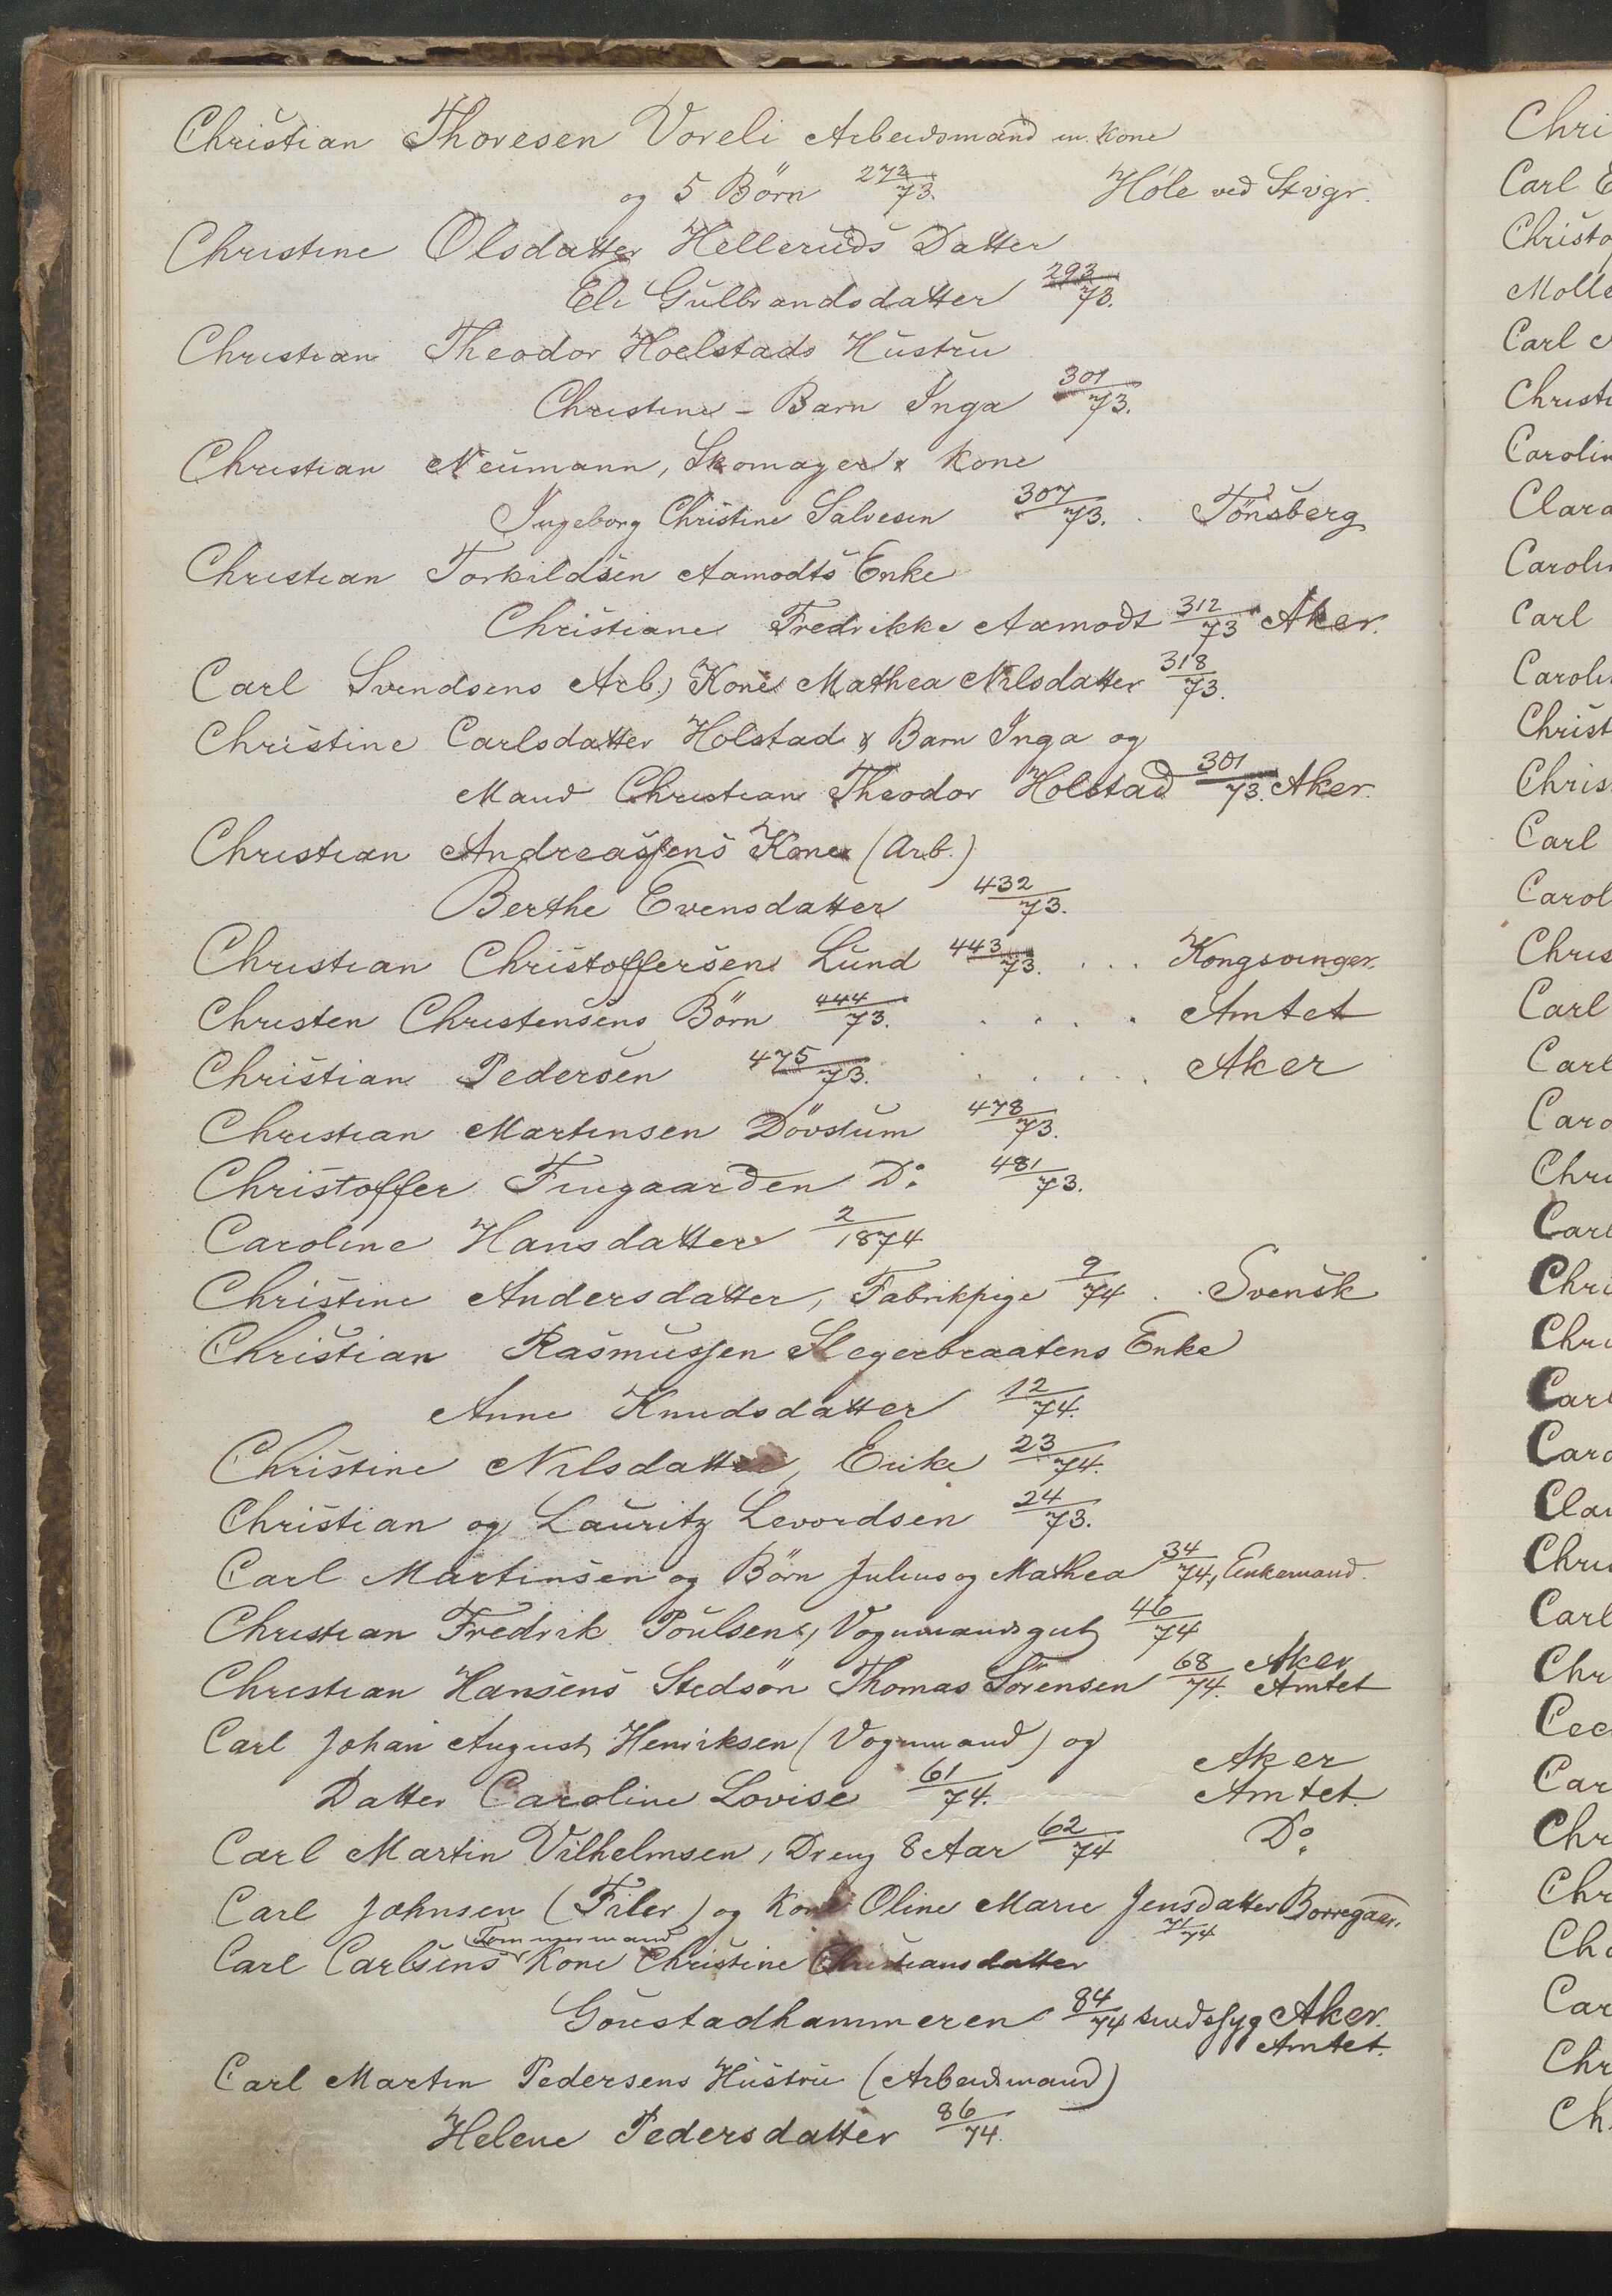 Christian Thoresen Voreli Arbeidsmand m. Kone
og 5 Börn 272/73. Höle ved Stvgr.
Christine Olsdatter Helleruds Datter
Eli Gulbrandsdatter 293/73.
Christian Theodor Hoelstads Hustru
Christine - Barn Inga 301/73.
Christian Neumann, Skomager & Kone
Ingeborg Christine Salvesen 307/73. Tönsberg
Christian Torkildsen Aamodts Enke
Christiane Fredrikke Aamodt 312/73 Aker.
Carl Svendsens Arb, Kone Mathea Nilsdatter 318/73.
Christine Carlsdatter Holstad & Barn Inga og
Mand Christian Theodor Holstad 301/73. Aker.
Christian Andreassens Kone (Arb.)
Berthe Evensdatter 432/73.
Christian Christoffersen Lund 443/73. . . . Kongsvinger.
Christen Christensens Börn 444/73. . . . . Amtet
Christian Pedersen 475/73. . . . . . Aker
Christian Martinsen Dövstum 478/73.
Christoffer Fingaarden Do 481/73.
Caroline Hansdatter 2/1874
Christine Andersdatter, Fabrikpige 9/74 . . Svensk
Christian Rasmussen Slegerbraatens Enke
Anne Knudsdatter 12/74.
Christine Nilsdatter, Enke 23/74.
Christian og Lauritz Levordsen 24/73.
Carl Martinsen og Börn Julius og Mathea 34/74, Enkemand.
Christian Fredrik Poulsen, Vognmandsgut 46/74
Christian Hansens Stedsön Thomas Sörensen 68/74. Aker Amtet
Carl Johan August Henriksen (Vognmand) og
Datter Caroline Lovise 61/74. Aker Amtet.
Carl Martin Vilhelmsen, Dreng 8 Aar 62/74 Do
Carl Johnsen (Filer) og Kone Oline Marie Jensdatter Borregaar. 71/74
Carl Carlsens Tömmermand Kone Christine Christiansdatter
Goustadhammeren 84/74 sindssyg Aker. Amtet.
Carl Martin Pedersens Hustru (Arbeidsmand)
Helene Pedersdatter 86/74.
Chri
Carl E
Christo
Molle
Carl
Christi
Carolin
Clara
Carolin
Carl
Carolin
Christ
Chris
Carl
Carol
Chris
Carl
Carl
Caro
Chri
Carl
Chri
Chri
Carl
Caro
Clar
Chri
Carl
Chr
Cec
Car
Chr
Chr
Ch
Car
Chr
Ch